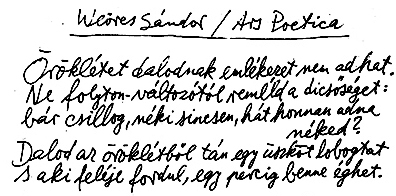 Weöres Sándor / Ars Poetica
Öröklétet dalodnak emlékezet nem adhat.
Ne folyton-változótól reméld a dicsőséget:
bár csillog, néki sincsen, hát honnan adna
néked?
Dalod az öröklétből tán egy üszköt lobogtat
s aki feléje fordul, egy percig benne éghet.